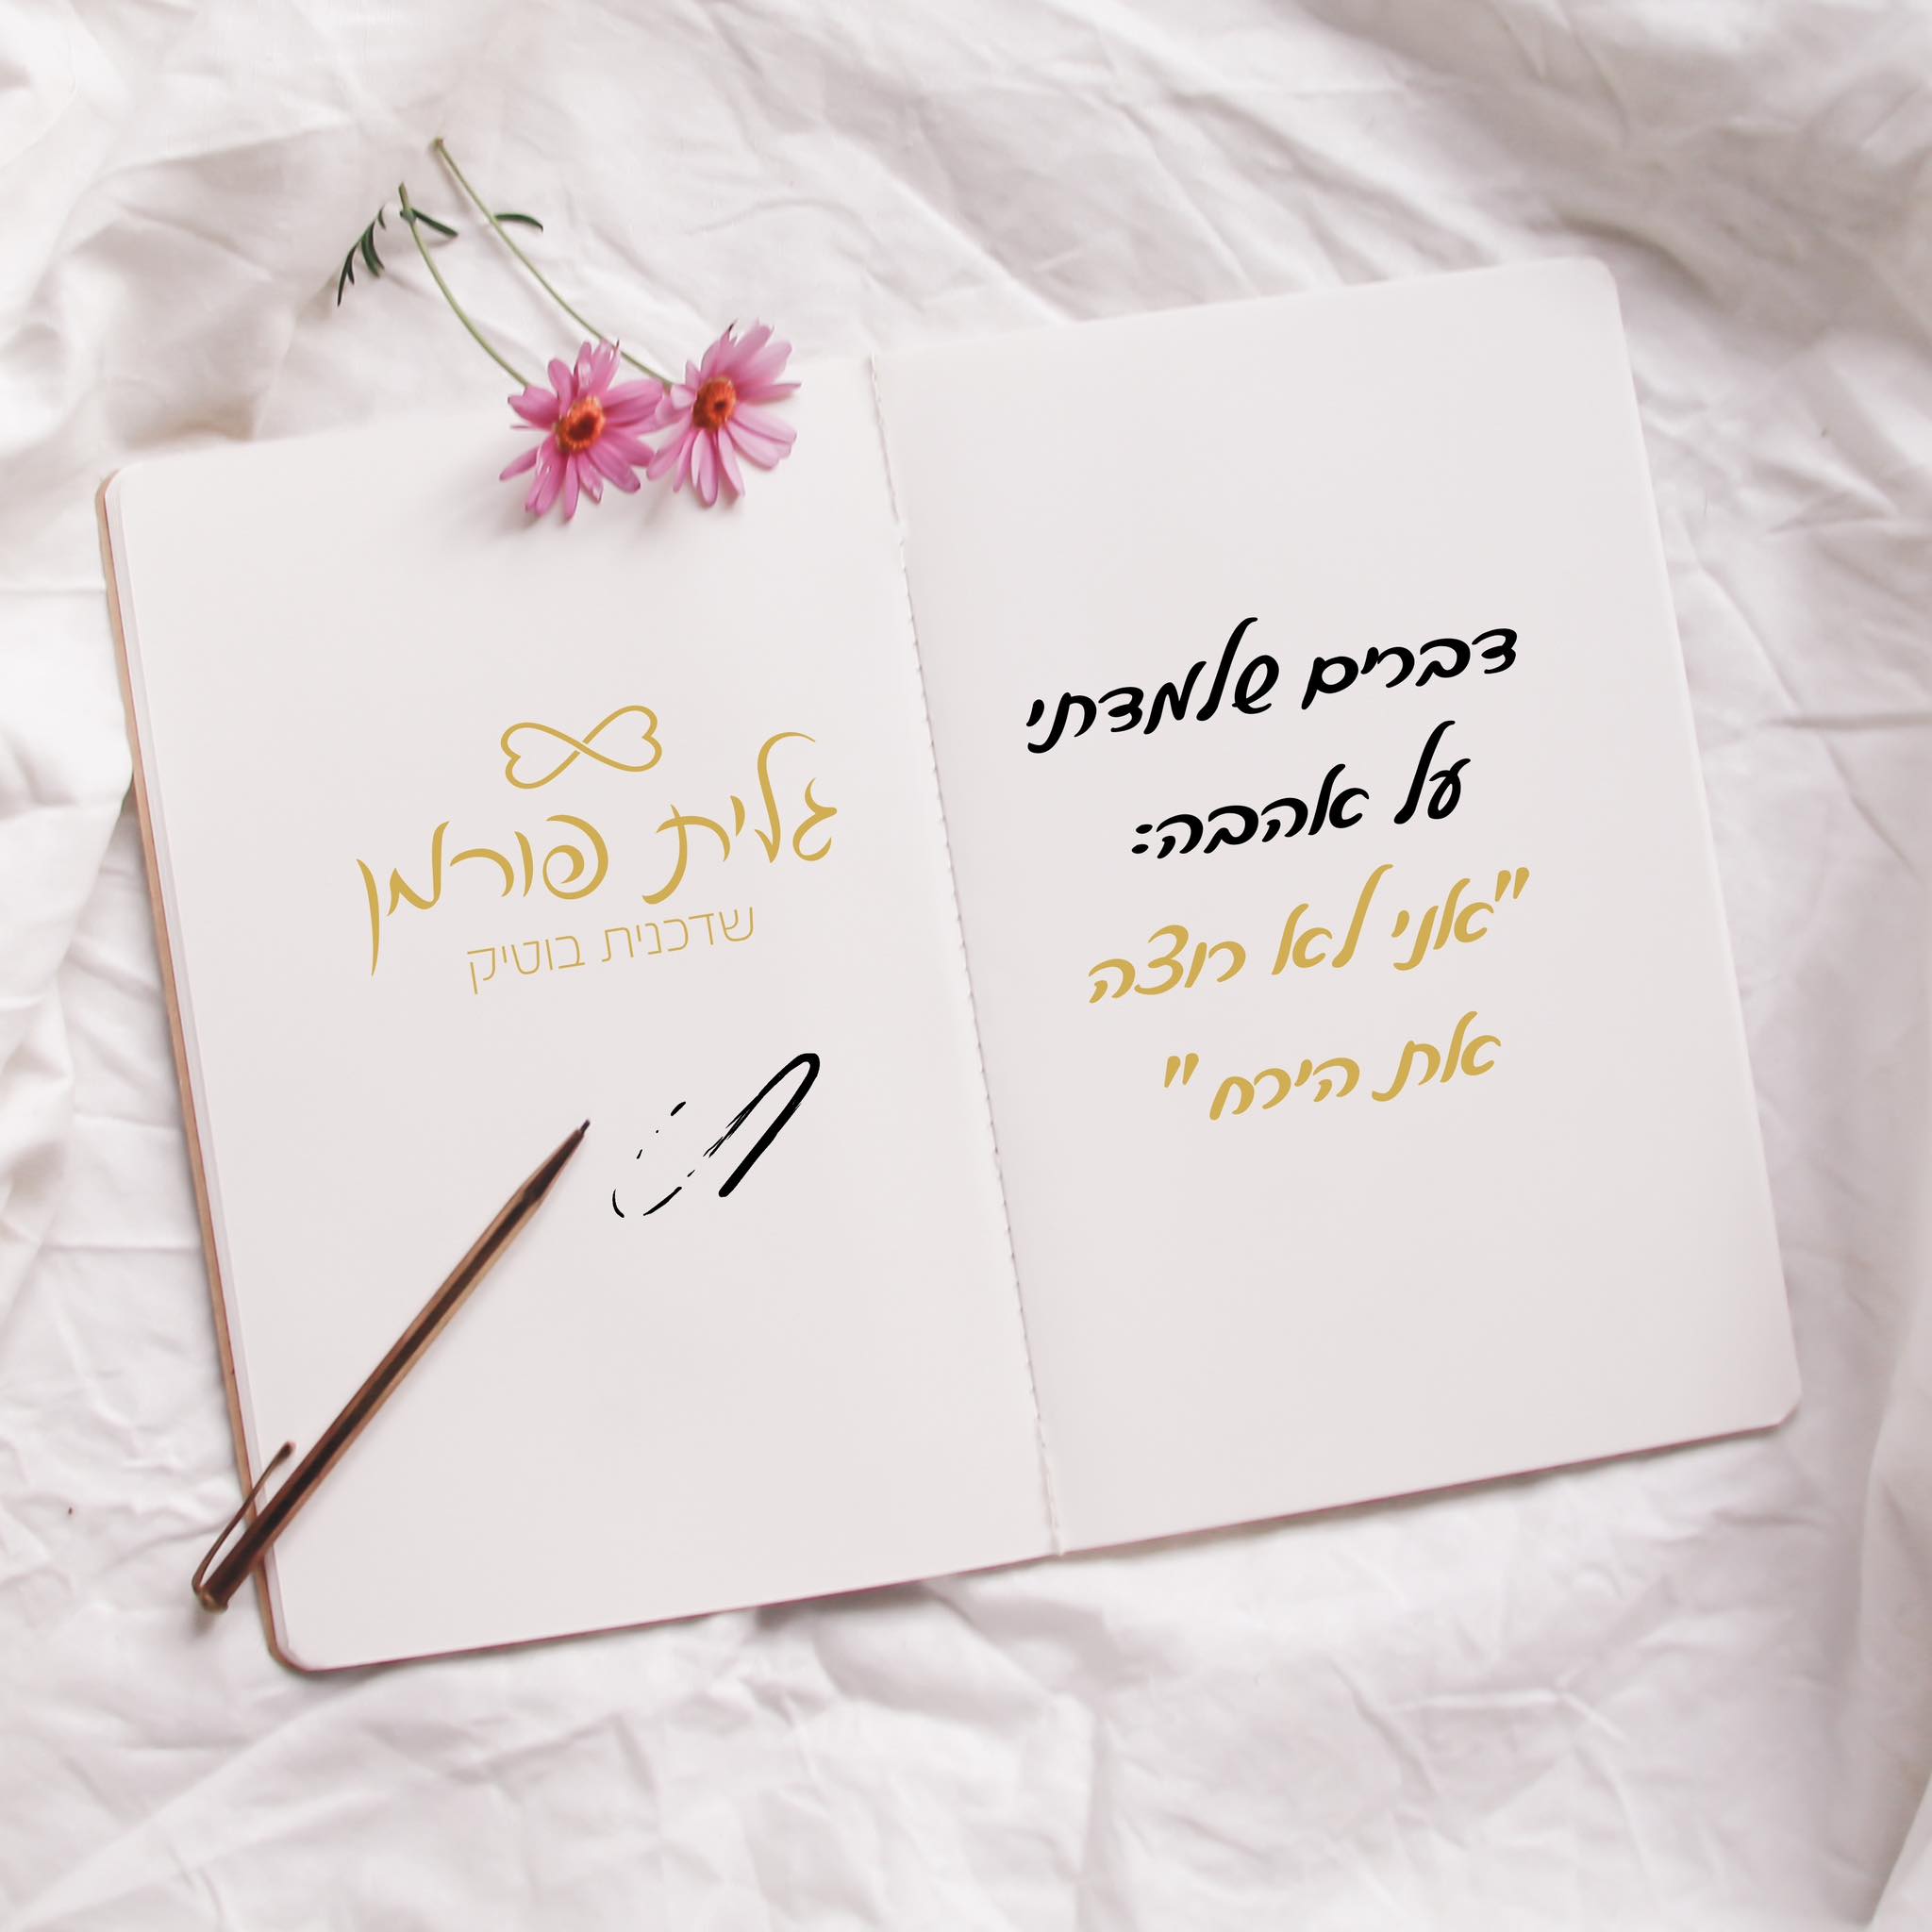 דברים שלמדתי
על אהבה:
"אני לא רוצה
את הירח"
גלית פורמן
שדכנית בוטיק